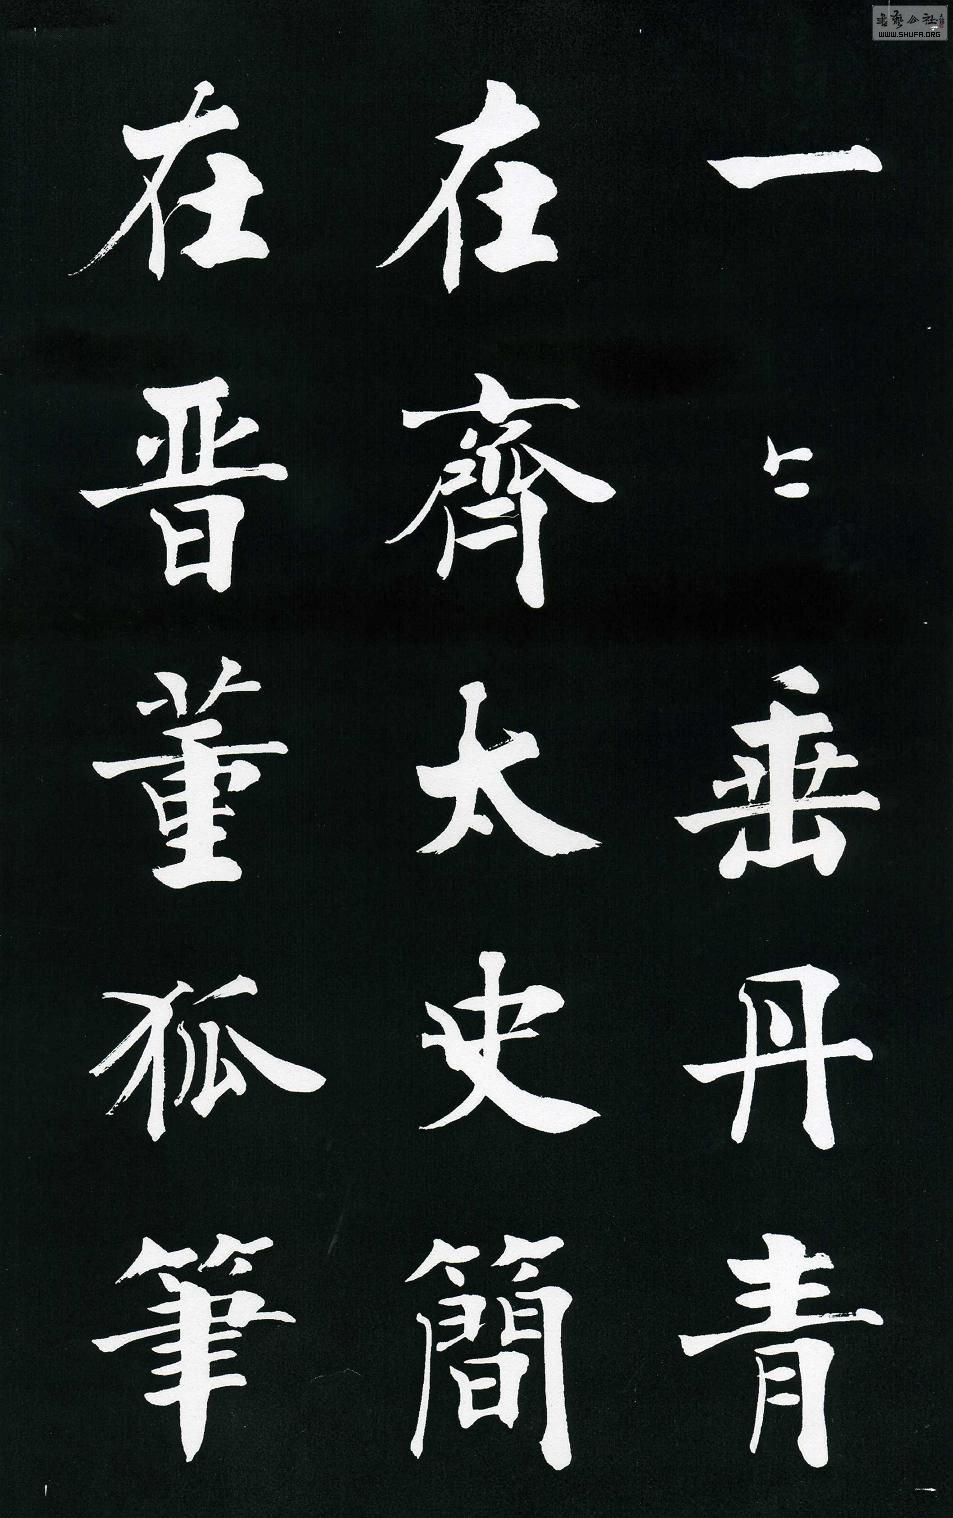 一〻垂丹青
在齊太史簡
在晋董狐筆
書藝公社
WWW.SHUFA.ORG